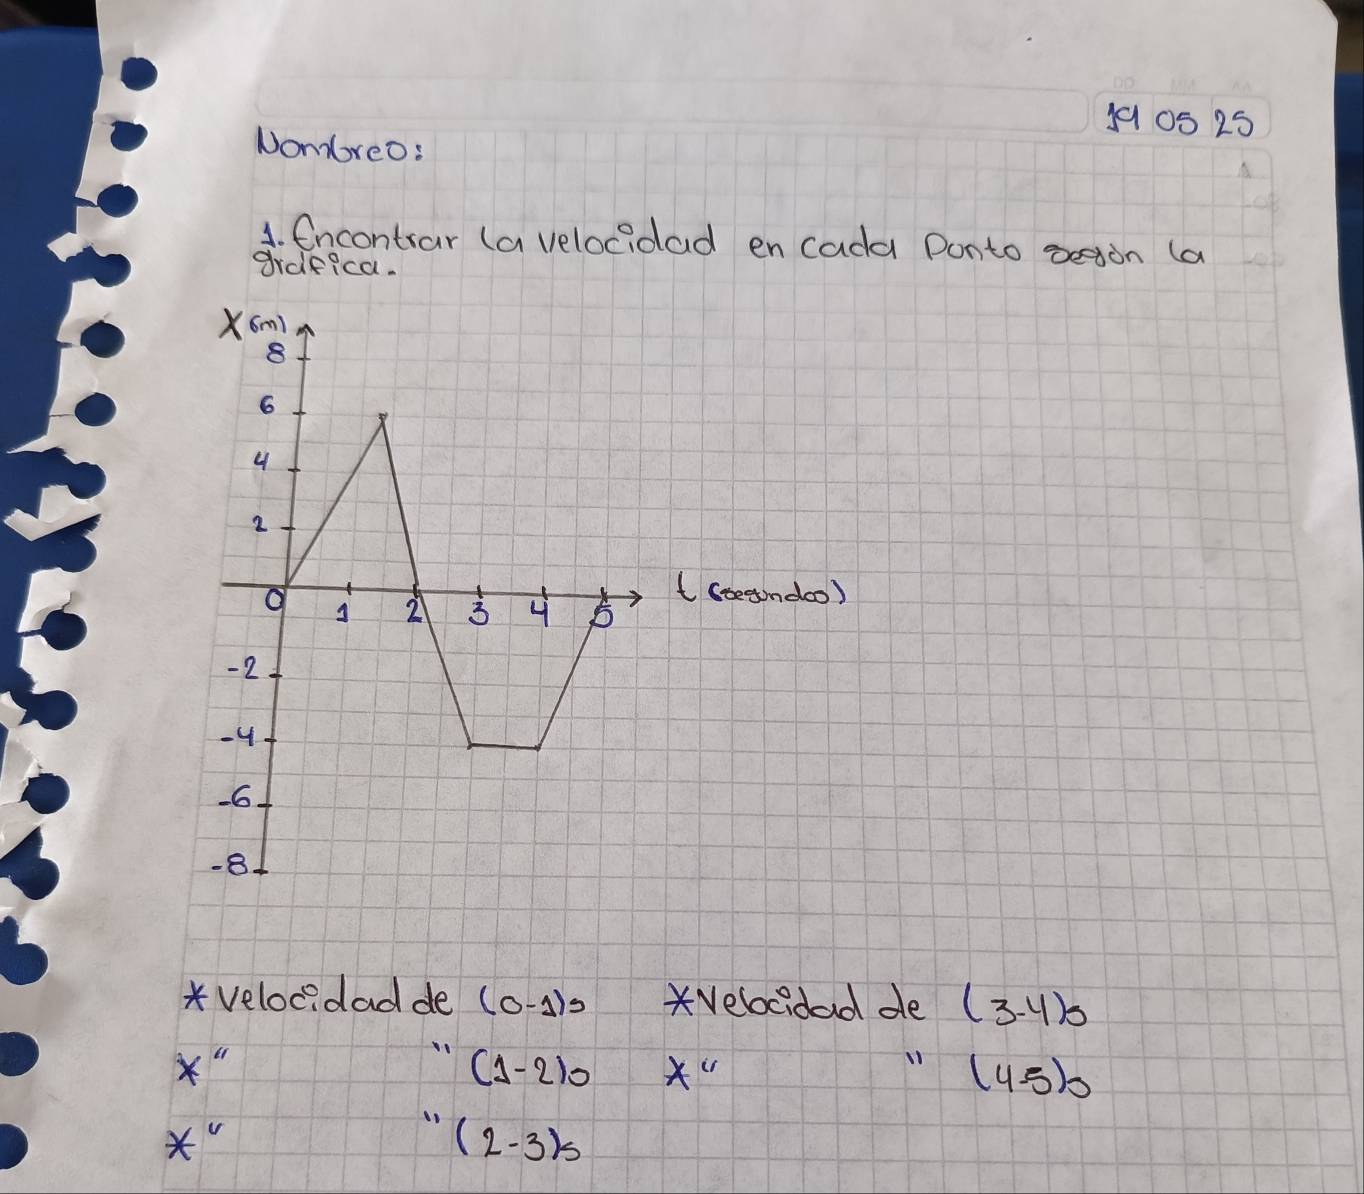 DD MM AA
19 05 25
Nombres:
1. Encontrar la velocidad en cada punto según la
gráfica.
X (m)
8
6
4
2
0 1 2 3 4 5 t (segundos)
-2
-4
-6
-8
* velocidad de (0-1)s * velocidad de (3-4)s
* " " (1-2)s * " " (4-5)s
* " " (2-3)s